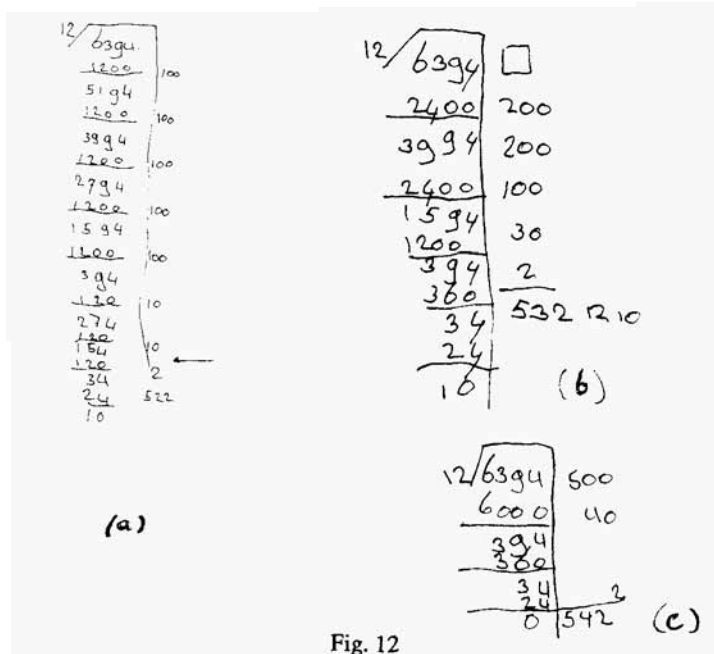 12 6394
1200 100
5194
1200 100
3994
1200 100
2794
1200 100
1594
1200 100
394
120 10
274
120
154 10
120 2
34
24 522
10
(a)
12 6394
2400 200
3994 200
2400 100
1594
1200 30
394 2
360
34 532 r 10
24
10
(b)
12 6394 500
6000 40
394
360
34
24 2
0 542
(c)
Fig. 12